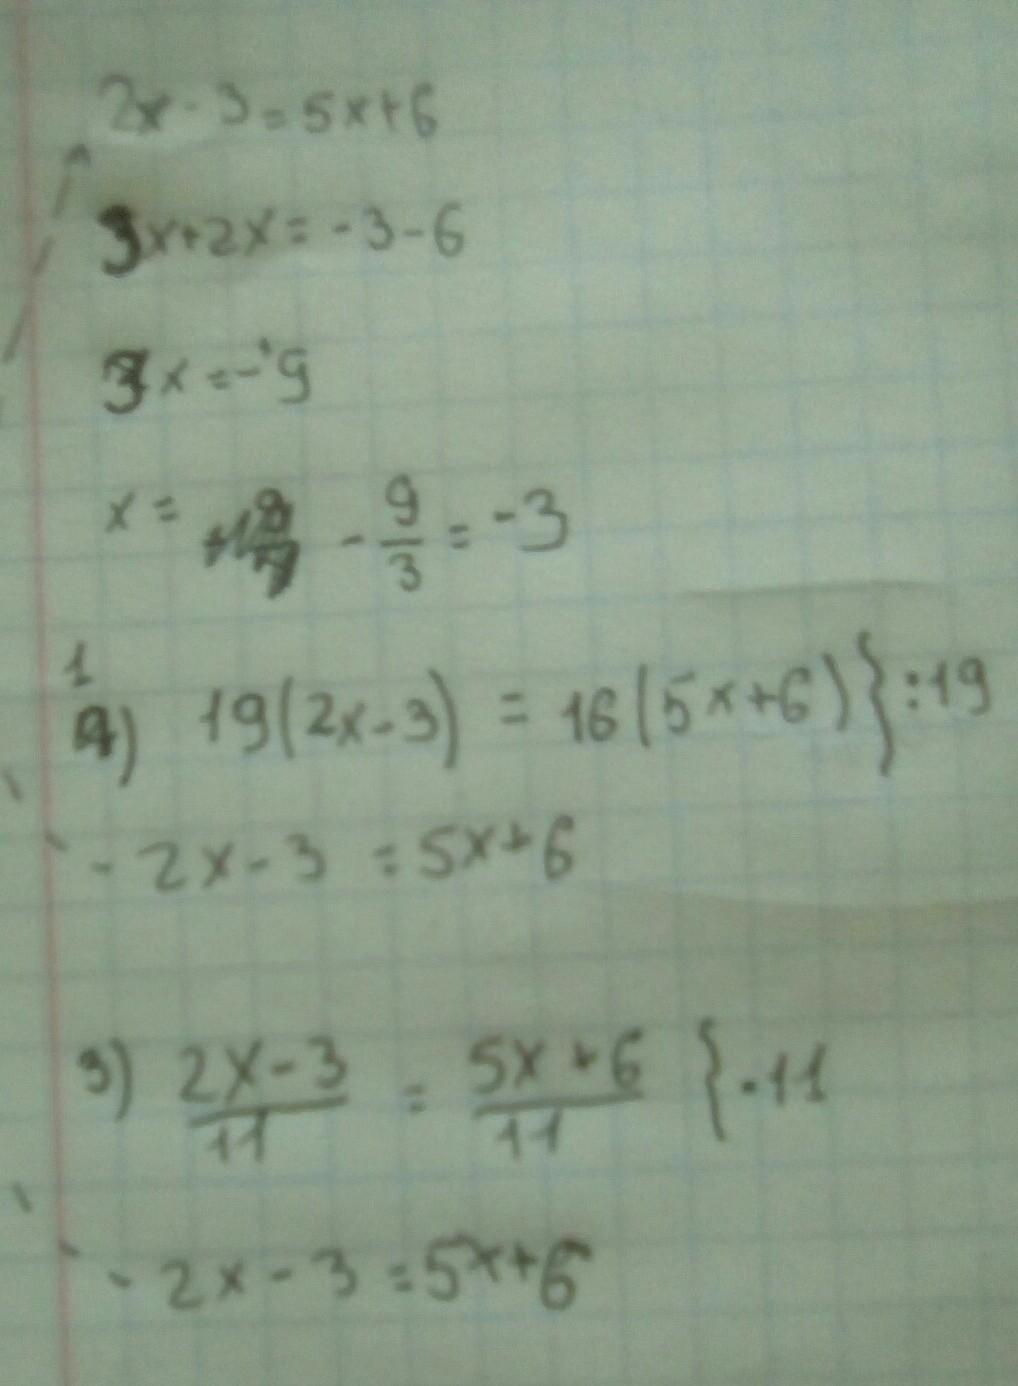 2x - 3 = 5x + 6
3x + 2x = -3 - 6
3x = -9
x = - 9/3 = -3
1) 19(2x - 3) = 16(5x + 6) } : 19
- 2x - 3 = 5x + 6
3) 2x - 3 / 11 = 5x + 6 / 11 } · 11
- 2x - 3 = 5x + 6